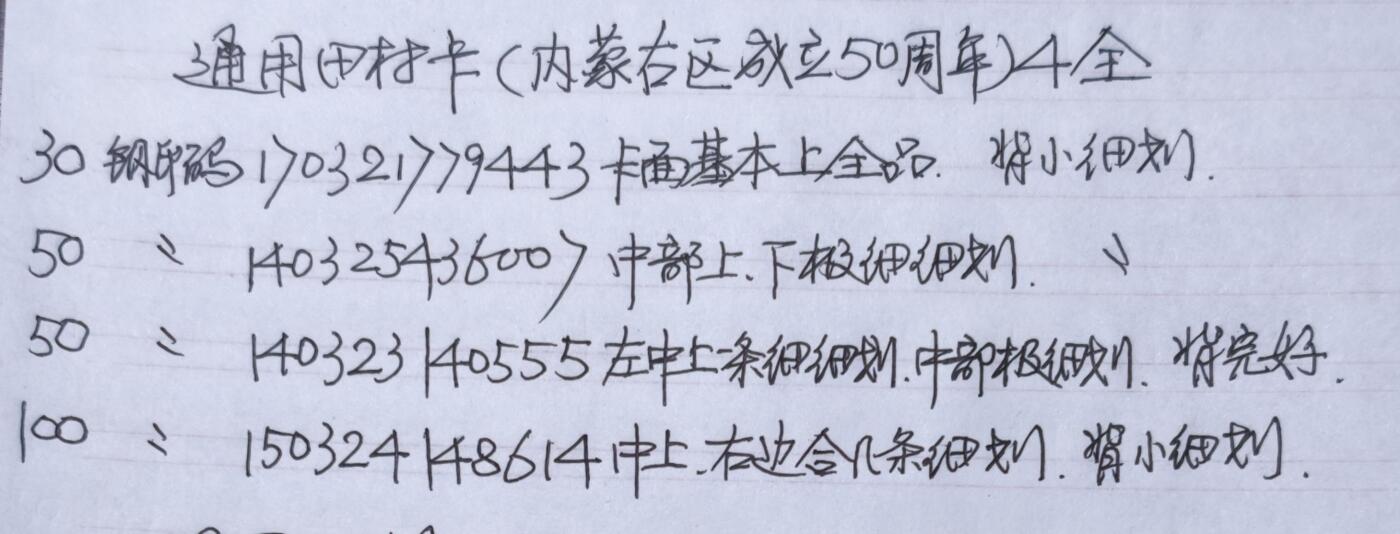 通用田村卡(内蒙古区成立50周年)4全
30 钢印码170321779443卡面基本上全品. 背小细划.
50 〃 140325436007中部上.下极细细划. 〃
50 〃 140323140555左中上一条细细划.中部极细划. 背完好.
100 〃 150324148614中上.右边合几条细划. 背小细划.